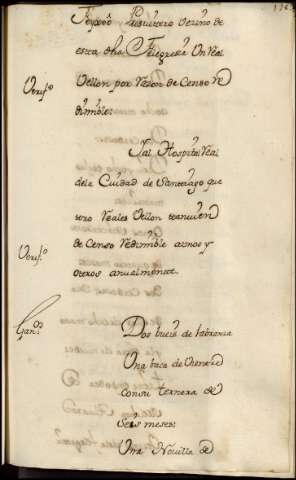 Presvitero Vecino de
esta dha Feligresía Un Real
Vellon por Razon de Censo Re
dimible:
Verif.o
Yal Hospital Real
dela Ciudad de Santiago que
tro Reales Vellon tanvien
de Censo Redimible aunos y
otros anualmente.
Verif.o
Gan.os
Dos bueis de labranza
Una baca de
consu ternera de
Seis meses:
Una Novilla de